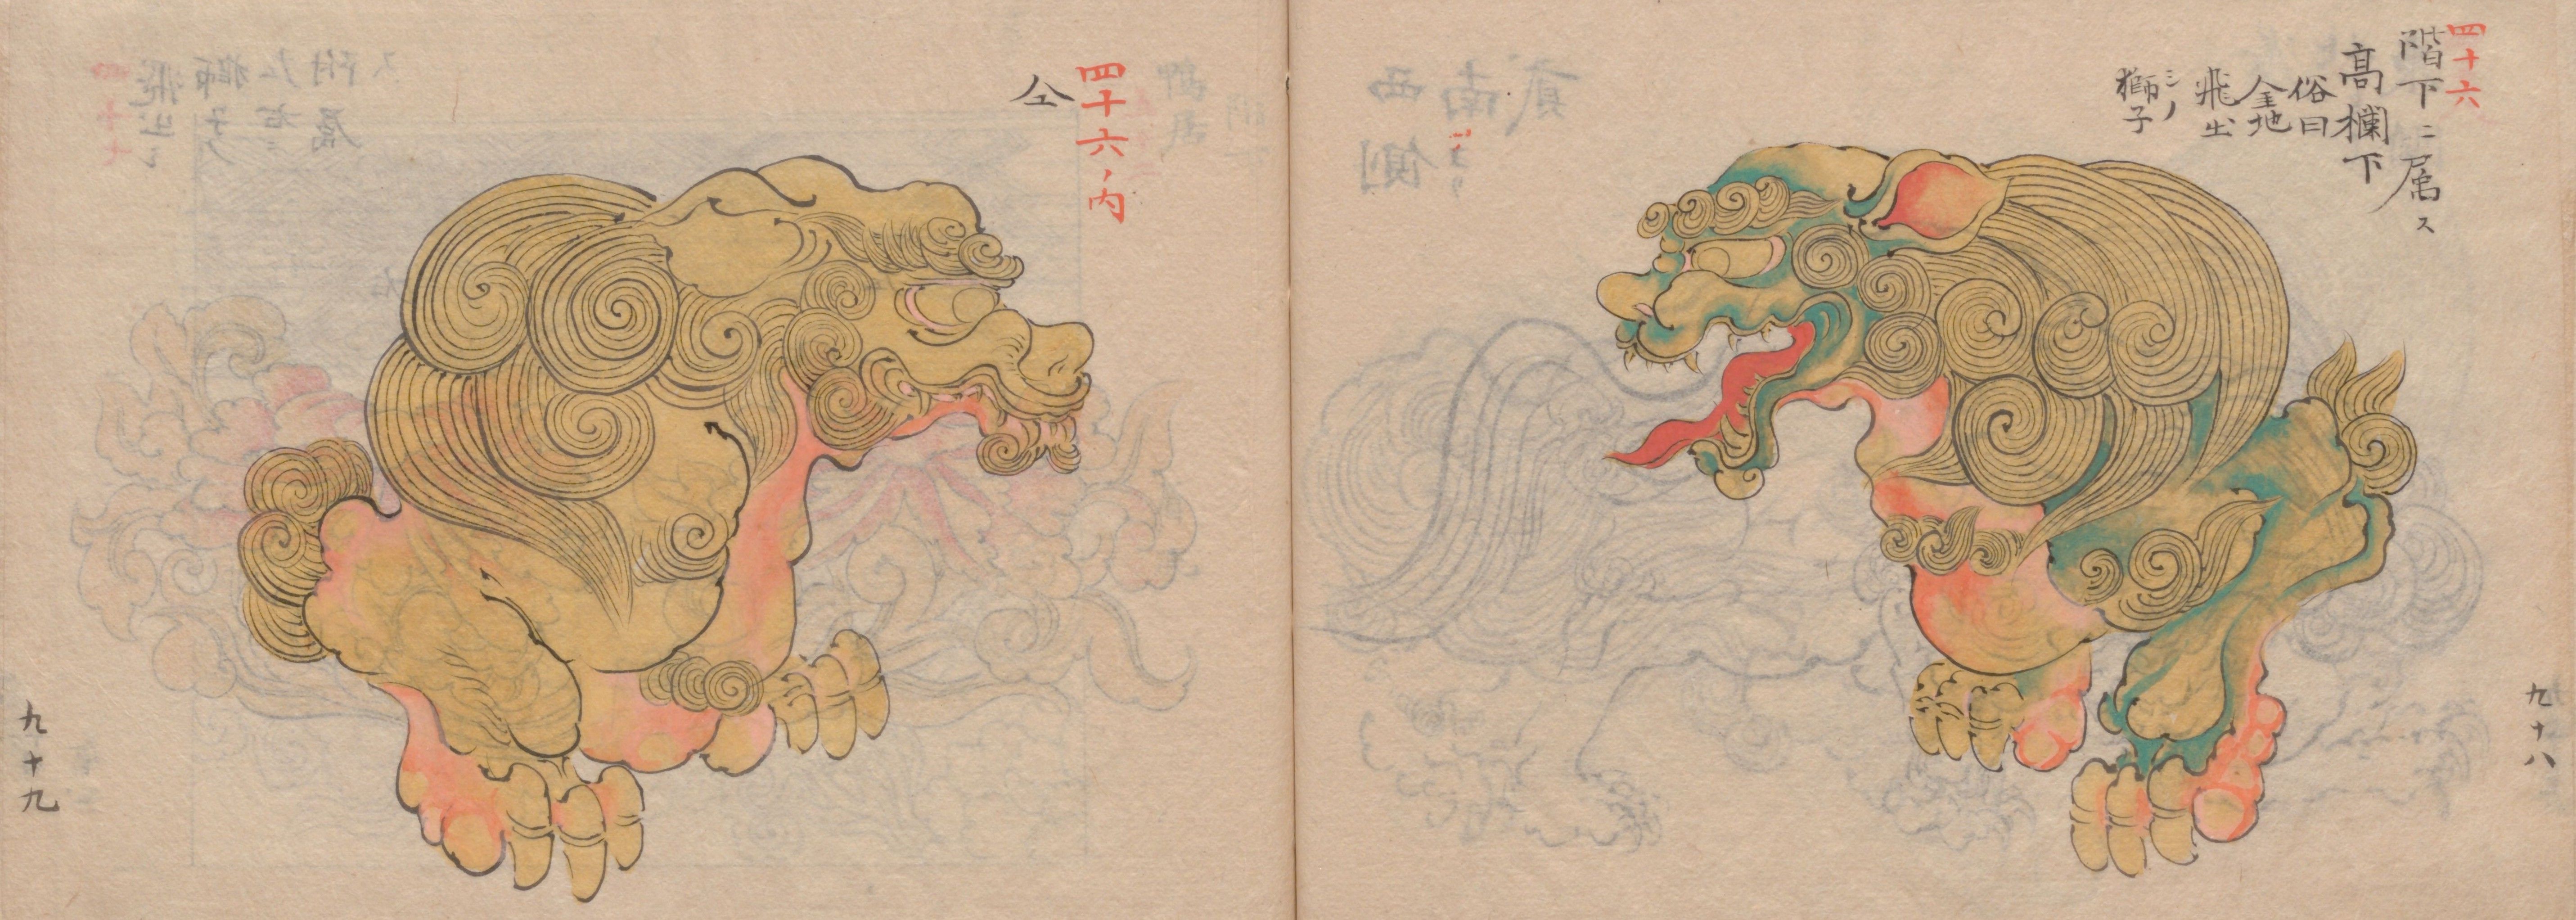 四十六
階下ニ属ス
高欄下
俗曰
金地
飛出
シノ
獅子
九十八
四十六ノ内
仝
九十九